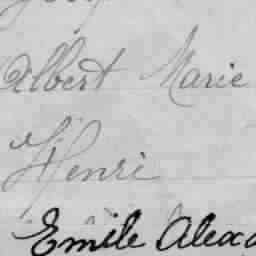 Albert Marie
Henri
Emile